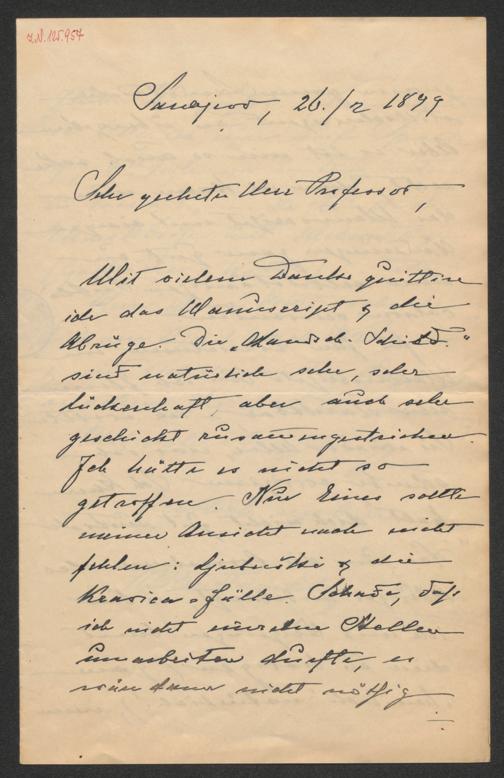 I.N. 125.957
Sarajevo, 26./2 1899
Sehr geehrter Herr Professor,
Mit vielem Danke quittire
ich das Manuscript & die
Abzüge. Die „Landsch. Schild.“
sind natürlich sehr, sehr
lückenhaft, aber auch sehr
geschickt zusammengestrichen.
Ich hätte es nicht so
getroffen. Nur Eines sollte
meiner Ansicht nach nicht
fehlen: Ljubuški & die
Kravica-Fälle. Schade, daß
ich nicht einzelne Stellen
umarbeiten durfte, es
wäre dann nicht nöthig